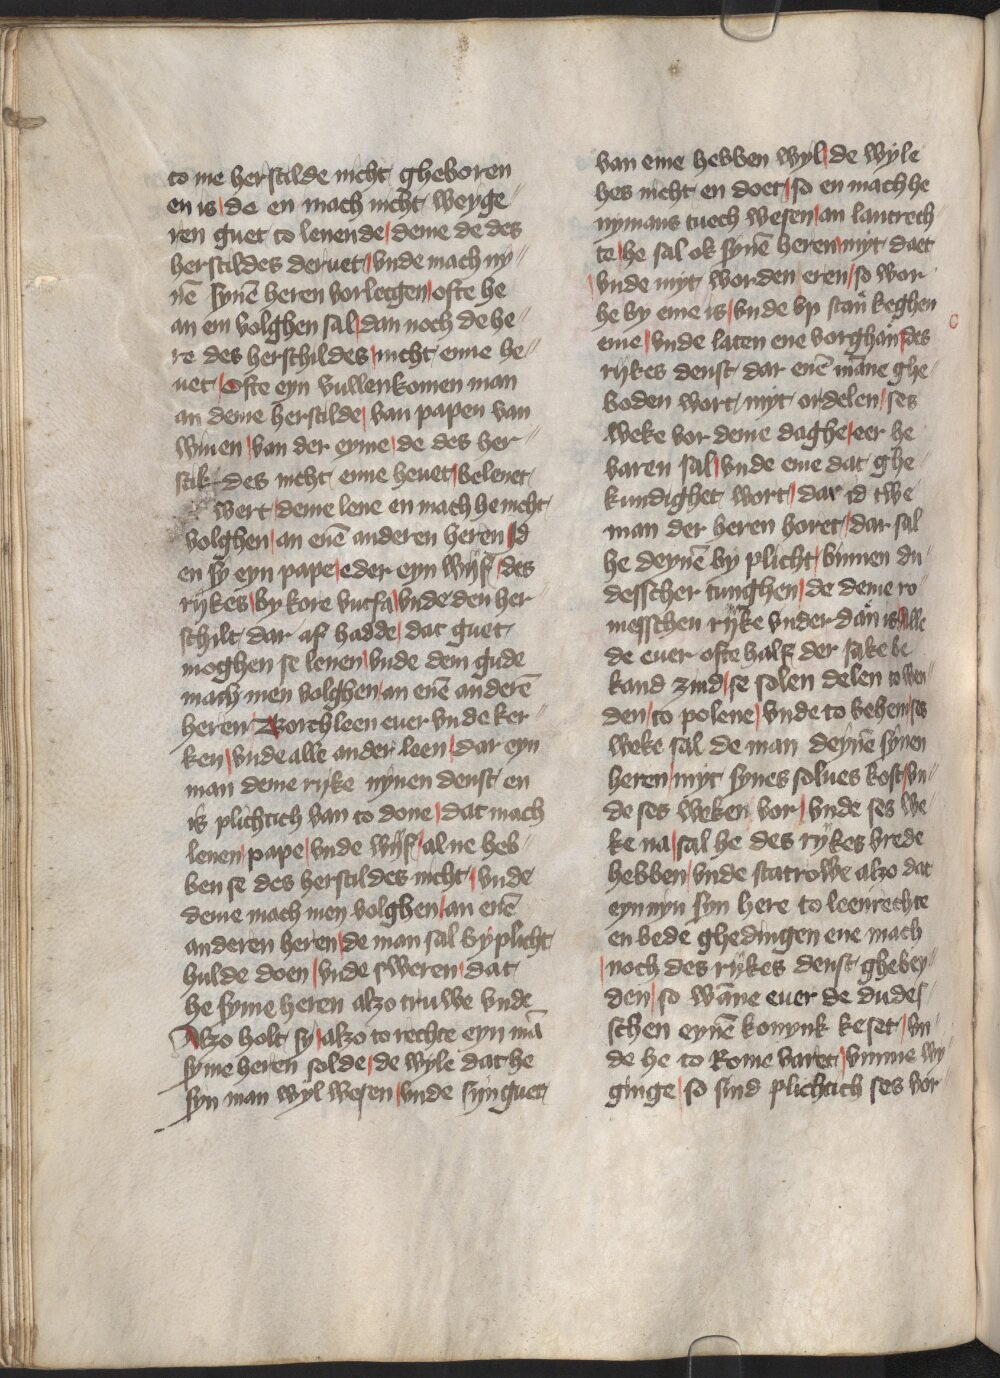 to me herscilde nicht gheboren
en is de en mach nicht weyge
ren guet to lenende deme de des
herscildes deruet vnde mach ny
nē synē heren vorlecgen ofte he
an em volghen sal dan noch de he
re des herschildes nicht enne he
uet Ofte eyn vullenkomen man
an deme herscilde van papen van
wiuen van der eyme de des her
scil des nicht enne heuet belenet
wert deme lene en mach he nicht
volghen an enē anderen heren id
en sy eyn pape eder eyn wijf des
rijkes by kore vntfa vnde den her
schilt dar af hadde dat guet
moghen se lenen vnde dem gude
mach men volghen an enē anderē
heren Borchleen euer vnde ker
ken vnde alle ander leen dar eyn
man deme rijke nynen denst en
is plichtich van to done dat mach
lenen pape vnde wijf al ne heb
ben se des herscildes nicht vnde
deme mach men volghen an enē
anderen heren de man sal by plicht
hulde doen vnde sweren dat
he syme heren alzo truwe vnde
Alzo holt sy alzo to rechte eyn mā
syme heren solde de wyle dat he
syn man wyl wesen vnde syn guet
van eme hebben wyl de wyle
hes nicht en doet so en mach he
nymans tuech wesen an lantrech
te he sal ok synē heren myt daet
vnde myt worden eren so wor
he by eme is vnde vp stan keghen
eme vnde laten ene vorghan des
rijkes denst dar enē māne ghe
boden wort myt ordelen ses
weke vor deme daghe eer he
varen sal vnde eme dat ghe
kundighet wort dar id twe
man der heren horet dar sal
he deynē by plicht binnen du
desscher tunghen de deme ro
messchen rijke vnder dan is Alle
de euer ofte half der sake be
kand zind se solen delen to wen
den to polene vnde to behem ses
weke sal de man deynē synen
heren myt synes solues kost vn
de ses weken vor vnde ses we
ke na sal he des rijkes vrede
hebben vnde scatrowe alzo dat
eyn nyn syn here to leenrechte
en bede ghedingen ene mach
noch des rijkes denst ghebey
den so wāne euer de dudes
schen eynē konynk keset vn
de he to Rome varet vmme wy
ginge so sind plichtich ses vor